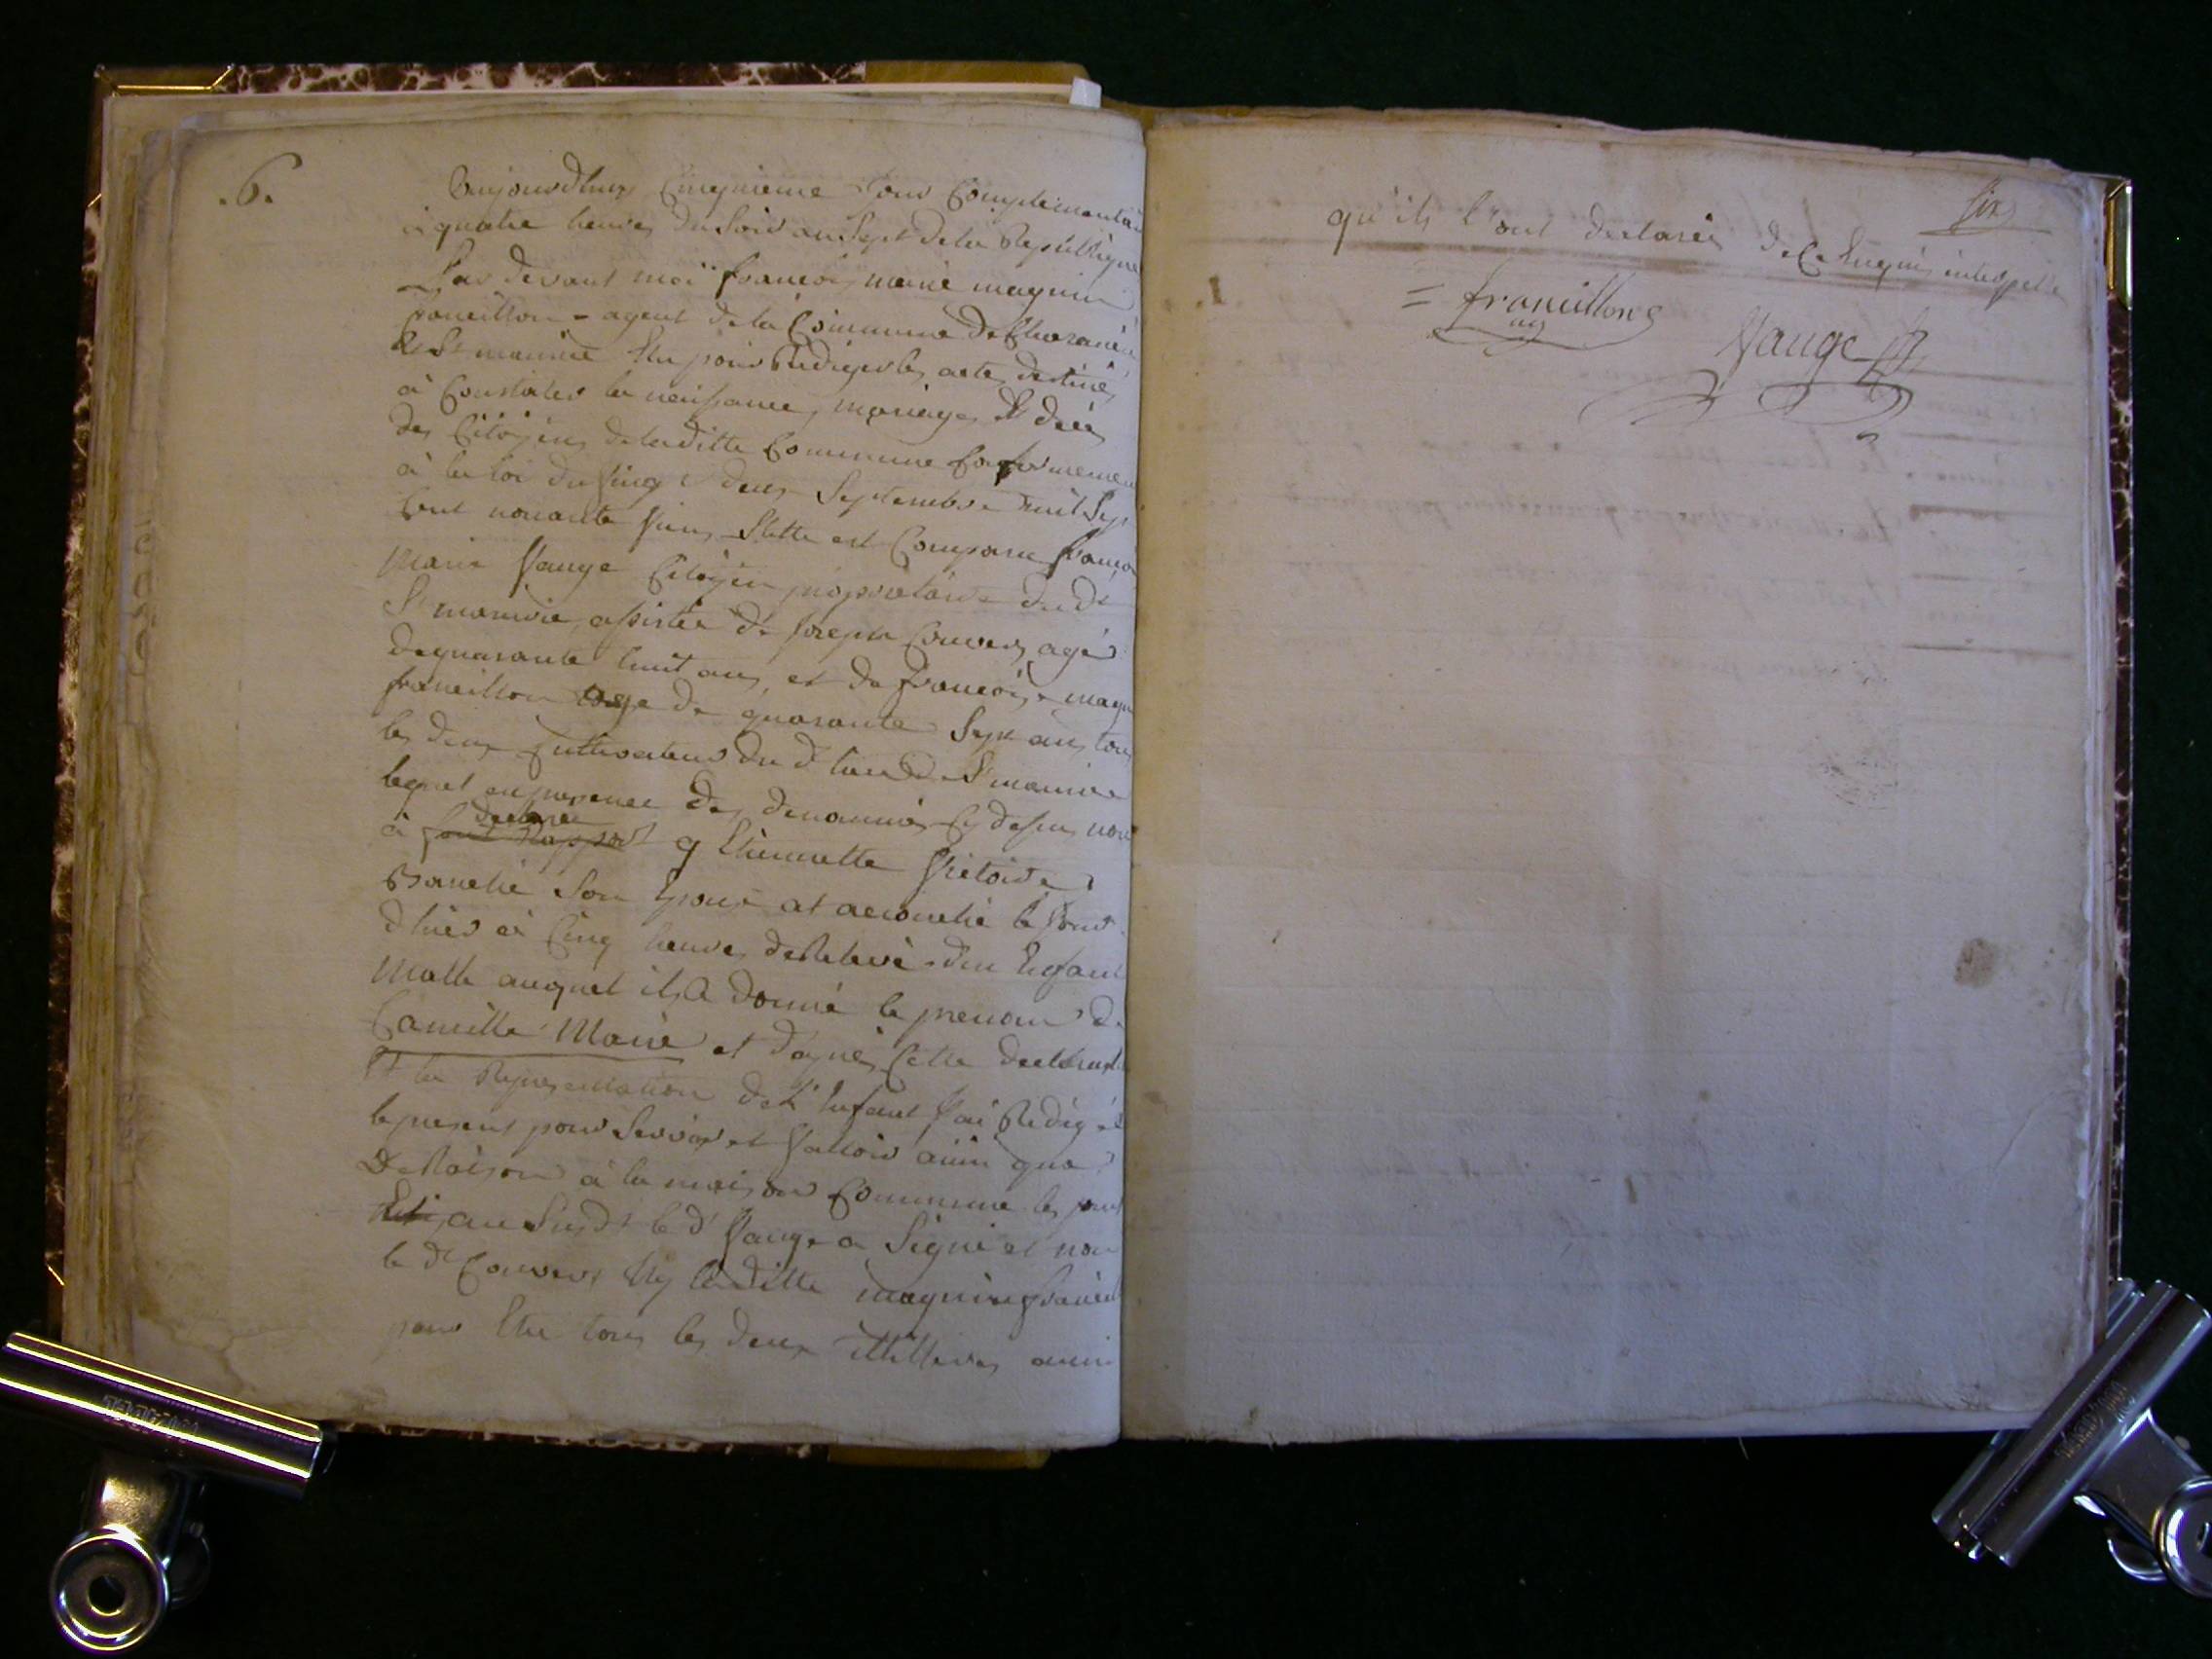 .6.
Aujourdhuy Cinquieme Jour Complementair
à quatre heures du Soir an Sept de la Republique
Par devant moi francois marie magnin
francillon - agent de la Commune de
& St maurice Elu pour Rediger les actes destinés
à Constater les naissances, mariages & deces
des Citoÿens de laditte Commune Conformemen
à la loi du vingt deux Septembre mil Sep
Cent nonante Stette est Comparu francoi
Marie Vauge Citoÿen propriétaire du dt
St maurice, assistée de Joseph Convers agé
de quarante huit ans, et de francois magn
francillon agé de quarante Sept ans tous
les deux Cultivateurs du dt lieu de St maurice
lequel en presence des denommés Cy dessus nou
declaré
à fait Rapport q Etiennette Victoire
Son Epouse at accouché le Jour
dhier à Cinq heures de Relevé d'un Enfant
Malle auquel il a donné le prenom de
Camille Marie et dapres Cette declarat
Et la Representation de L'Enfant J'ai Redigé
le present pour Servir et Valloir ainsi que
De Raison à la maison Commune les jour
an Susdt le dt Vauge a Signé et non
le dt Convers Ny laditte magnin francill
pour Etre tous les deux illitteres ainsi
Six
qu'ils l'ont declarés de Ce Enquis interpellé
= francillon
ag
Vauge